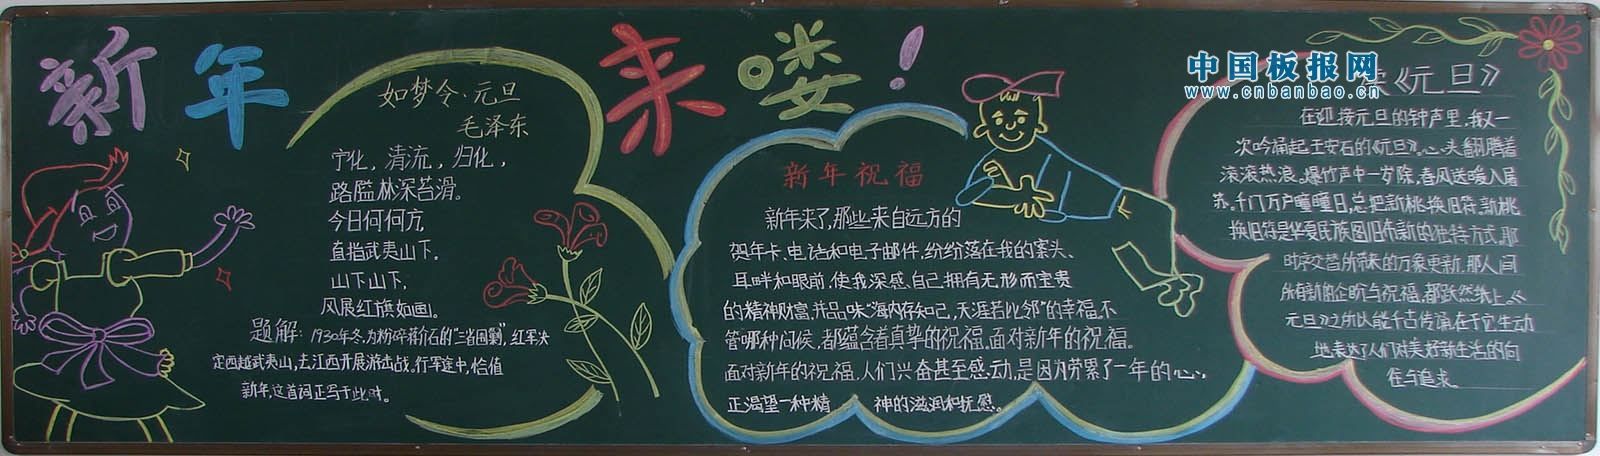 新年来喽!
如梦令·元旦
毛泽东
宁化,清流,归化,
路隘林深苔滑。
今日何何方,
直指武夷山下,
山下山下,
风展红旗如画。
题解:1930年冬,为粉碎蒋介石的“三省围剿”,红军决
定西越武夷山,去江西开展游击战,行军途中,恰值
新年,这首词正写于此时。
新年祝福
新年来了,那些来自远方的
贺年卡、电话和电子邮件,纷纷落在我的案头、
耳畔和眼前,使我深感自己拥有无形而宝贵
的精神财富,并品味“海内存知己,天涯若比邻”的幸福,不
管哪种问候,都蕴含着真挚的祝福。面对新年的祝福。
面对新年的祝福,人们兴奋甚至感动,是因为劳累了一年的心,
正渴望一种精神的滋润和抚慰。
中国板报网
www.cnbanbao.cn
《元旦》
在迎接元旦的钟声里,我又一
次吟诵起王安石的《元旦》。心头翻腾着
滚滚热浪。爆竹声中一岁除,春风送暖入屠
苏,千门万户曈曈日,总把新桃换旧符。新桃
换旧符是华夏民族图旧布新的独特方式,那
时序交替所带来的万象更新,那人间
所有新的企盼与祝福,都跃然纸上。《
元旦》之所以能千古传诵,在于它生动
地表达了人们对美好新生活的向
往与追求。